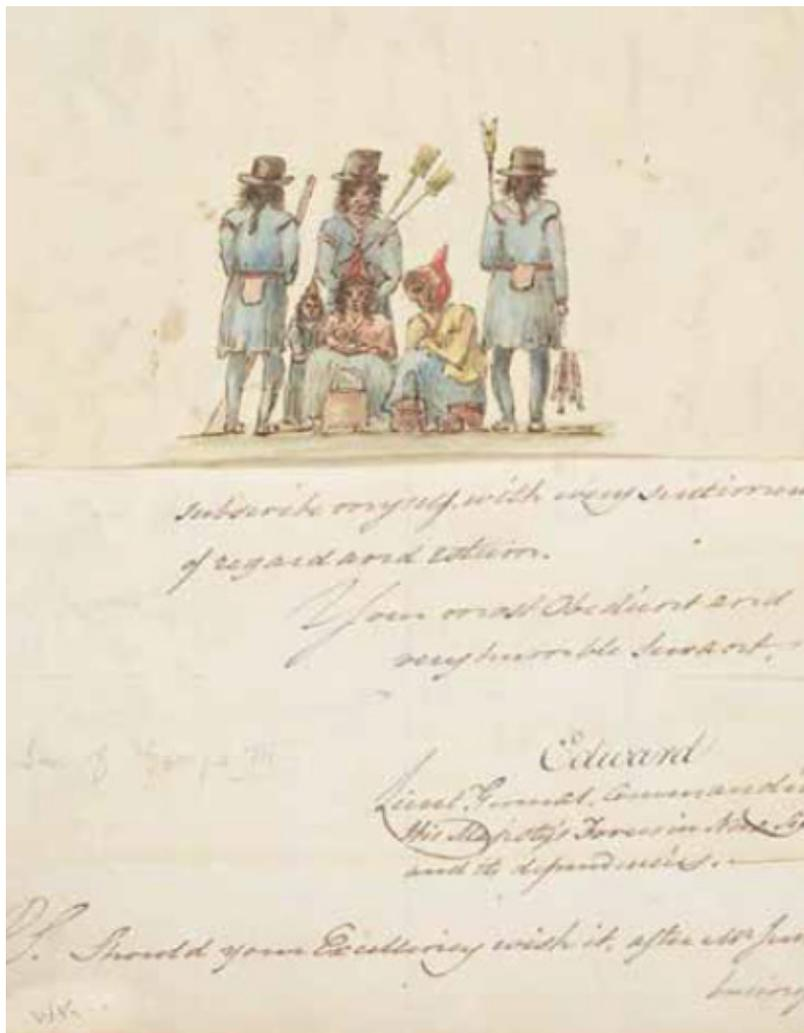 subscribe myself, with every sentimen
of regard and esteem.
Your most Obedient and
very humble Servant,
Edward
Lieut General, Commandi
His Majesty's Forces in Nova Sc
and its dependencies.
Son of George III
P.S. Should your Excellency wish it, after Mr